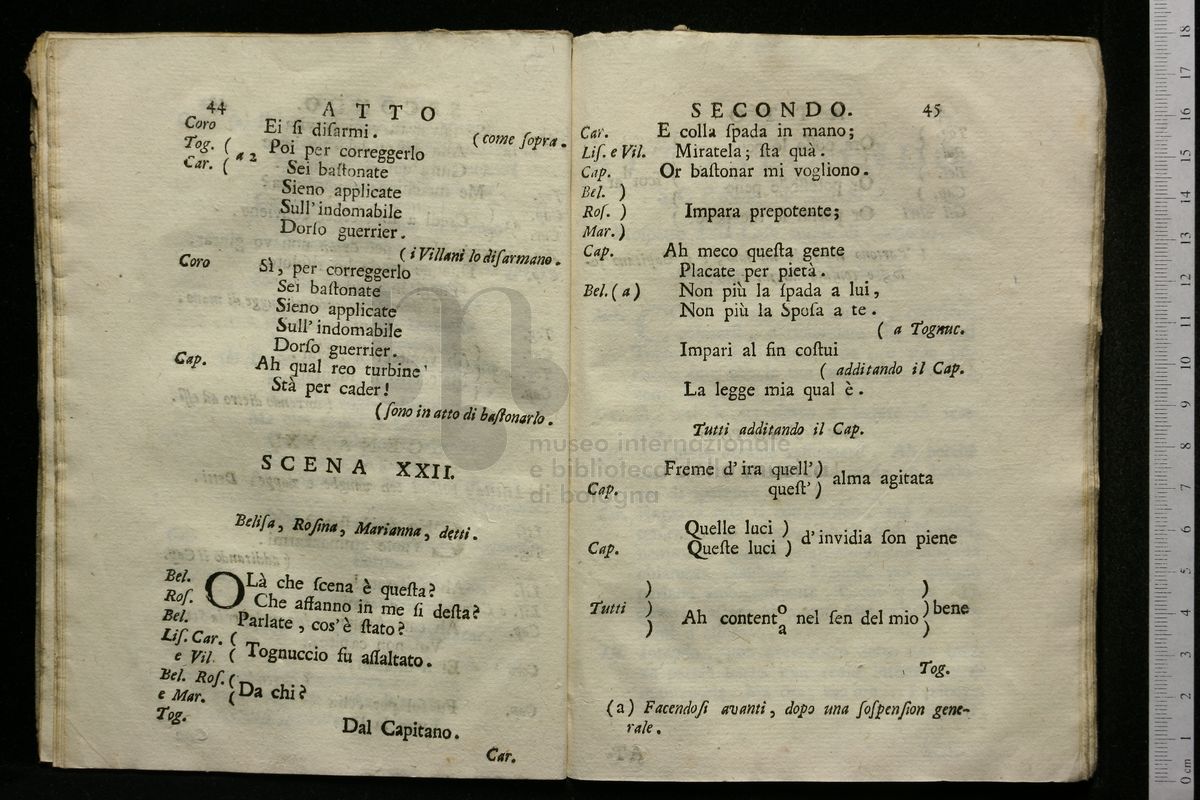 44 ATTO
Coro Ei ſi diſarmi.
Tog. ( a 2 Poi per correggerlo (come ſopra.
Car. ( Sei baſtonate
Sieno applicate
Sull'indomabile
Dorſo guerrier.
( i Villani lo diſarmano.
Coro Sì, per correggerlo
Sei baſtonate
Sieno applicate
Sull'indomabile
Dorſo guerrier.
Cap. Ah qual reo turbine
Stà per cader!
(ſono in atto di baſtonarlo.
SCENA XXII.
Beliſa, Roſina, Marianna, detti.
Bel. OLà che ſcena è queſta?
Roſ. Che affanno in me ſi deſta?
Bel. Parlate, cos'è ſtato?
Liſ. Car. (
e Vil. ( Tognuccio fu aſſaltato.
Bel. Roſ. (
e Mar. ( Da chi?
Tog. Dal Capitano.
Car.
SECONDO. 45
Car. E colla ſpada in mano;
Liſ. e Vil. Miratela; ſta quà.
Cap. Or baſtonar mi vogliono.
Bel. )
Roſ. ) Impara prepotente;
Mar. )
Cap. Ah meco queſta gente
Placate per pietà.
Bel. (a) Non più la ſpada a lui,
Non più la Spoſa a te.
( a Tognuc.
Impari al fin coſtui
( additando il Cap.
La legge mia qual è.
Tutti additando il Cap.
Freme d'ira quell' ) alma agitata
Cap. queſt' )
Quelle luci ) d'invidia ſon piene
Cap. Queſte luci )
) )
Tutti ) Ah contento nel ſen del mio ) bene
) a )
Tog.
(a) Facendoſi avanti, dopo una ſoſpenſion gene-
rale.
museo internazionale
e biblioteca della musica
di bologna
0 cm 1 2 3 4 5 6 7 8 9 10 11 12 13 14 15 16 17 18